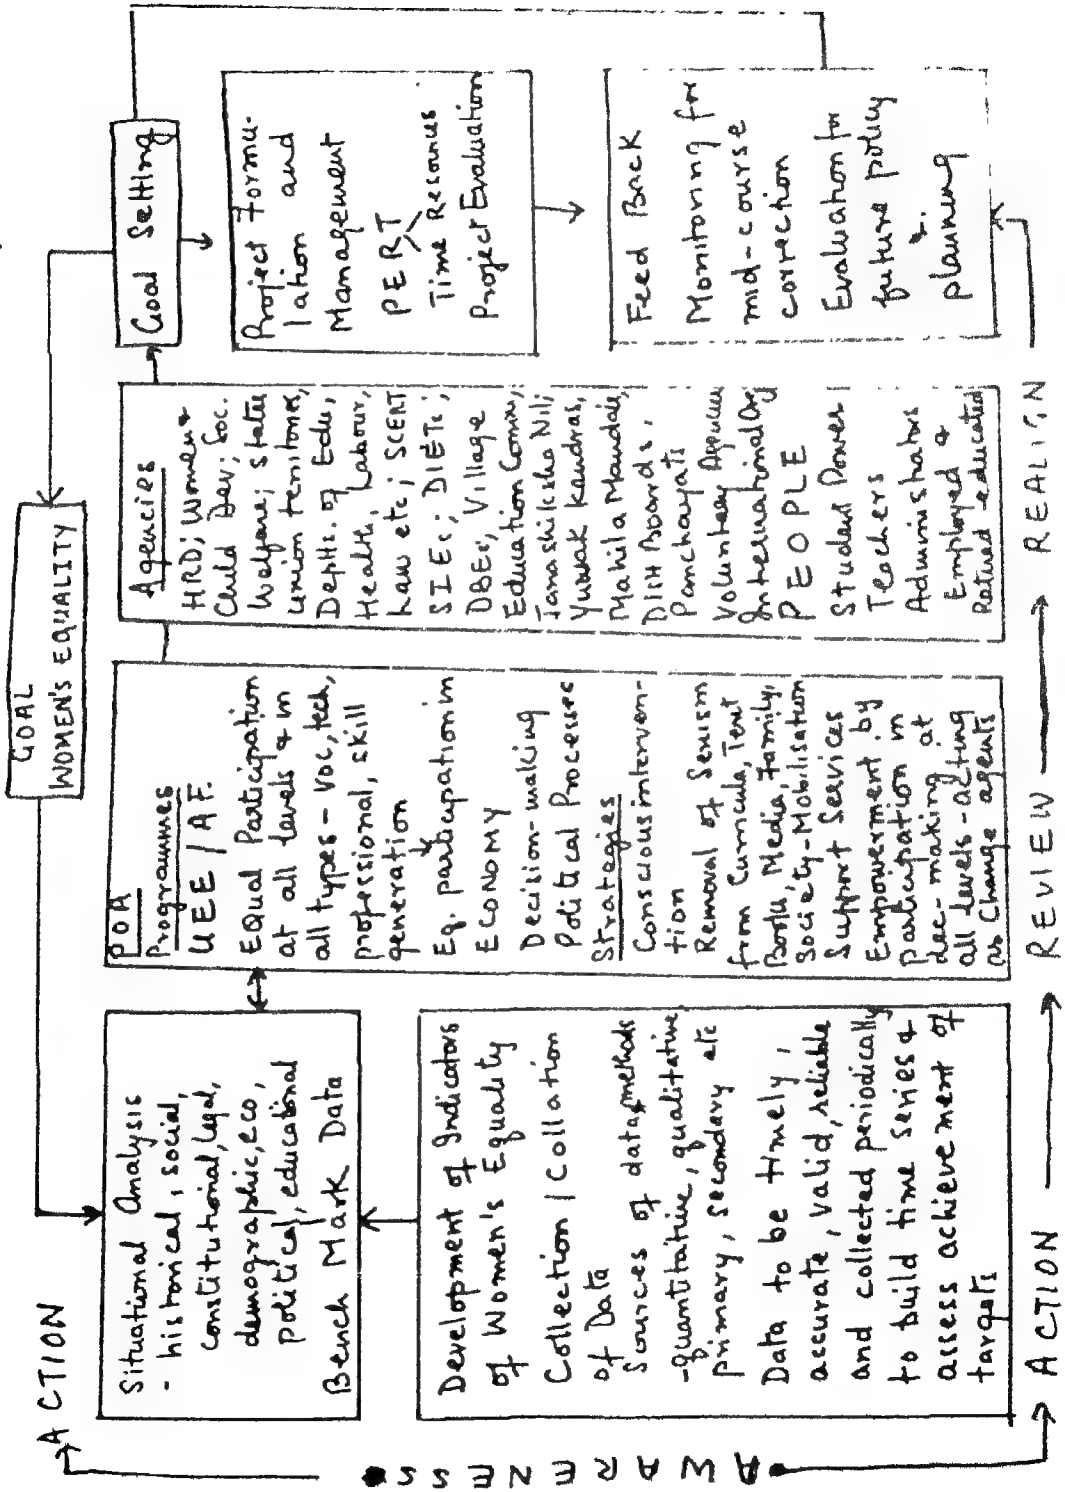 GOAL
WOMEN'S EQUALITY
ACTION
AWARENESS
Situational Analysis
- historical, social,
constitutional, legal,
demographic, eco,
political, educational
Bench Mark Data
Development of Indicators
of Women's Equality
Collection / Collation
of Data
Sources of data, methods
-quantitative, qualitative
primary, secondary etc
Data to be timely,
accurate, valid, reliable
and collected periodically
to build time series &
assess achievement of
targets
POA
Programmes
UEE / AF.
Equal Participation
at all levels & in
all types - voc, tech,
professional, skill
generation
Eq. participation in
ECONOMY
Decision-making
Political Processes
Strategies
Conscious interven-
tion
Removal of Sexism
from Curricula, Text
Books, Media, Family,
Society-Mobilisation
Support Services
Empowerment by
participation in
dec-making at
all levels-acting
as change agents
Agencies
HRD; Women &
Child Dev; Soc.
Welfare; States
union territories,
Deptts. of Edu,
Health, Labour,
Law etc; SCERT
SIEs; DIETs;
DBEs, Village
Education Comm,
Janashikshan Nil;
Yuvak Kendras,
Mahila Mandals,
Distt Boards,
Panchayats
Voluntary Agencies
International Org
PEOPLE
Student Power
Teachers
Administrators
Employed &
Retired educated
Goal Setting
Project Formu-
lation and
Management
PERT
Time Resources
Project Evaluation
Feed Back
Monitoring for
mid-course
correction
Evaluation for
future policy
&
planning
ACTION REVIEW REALIGN